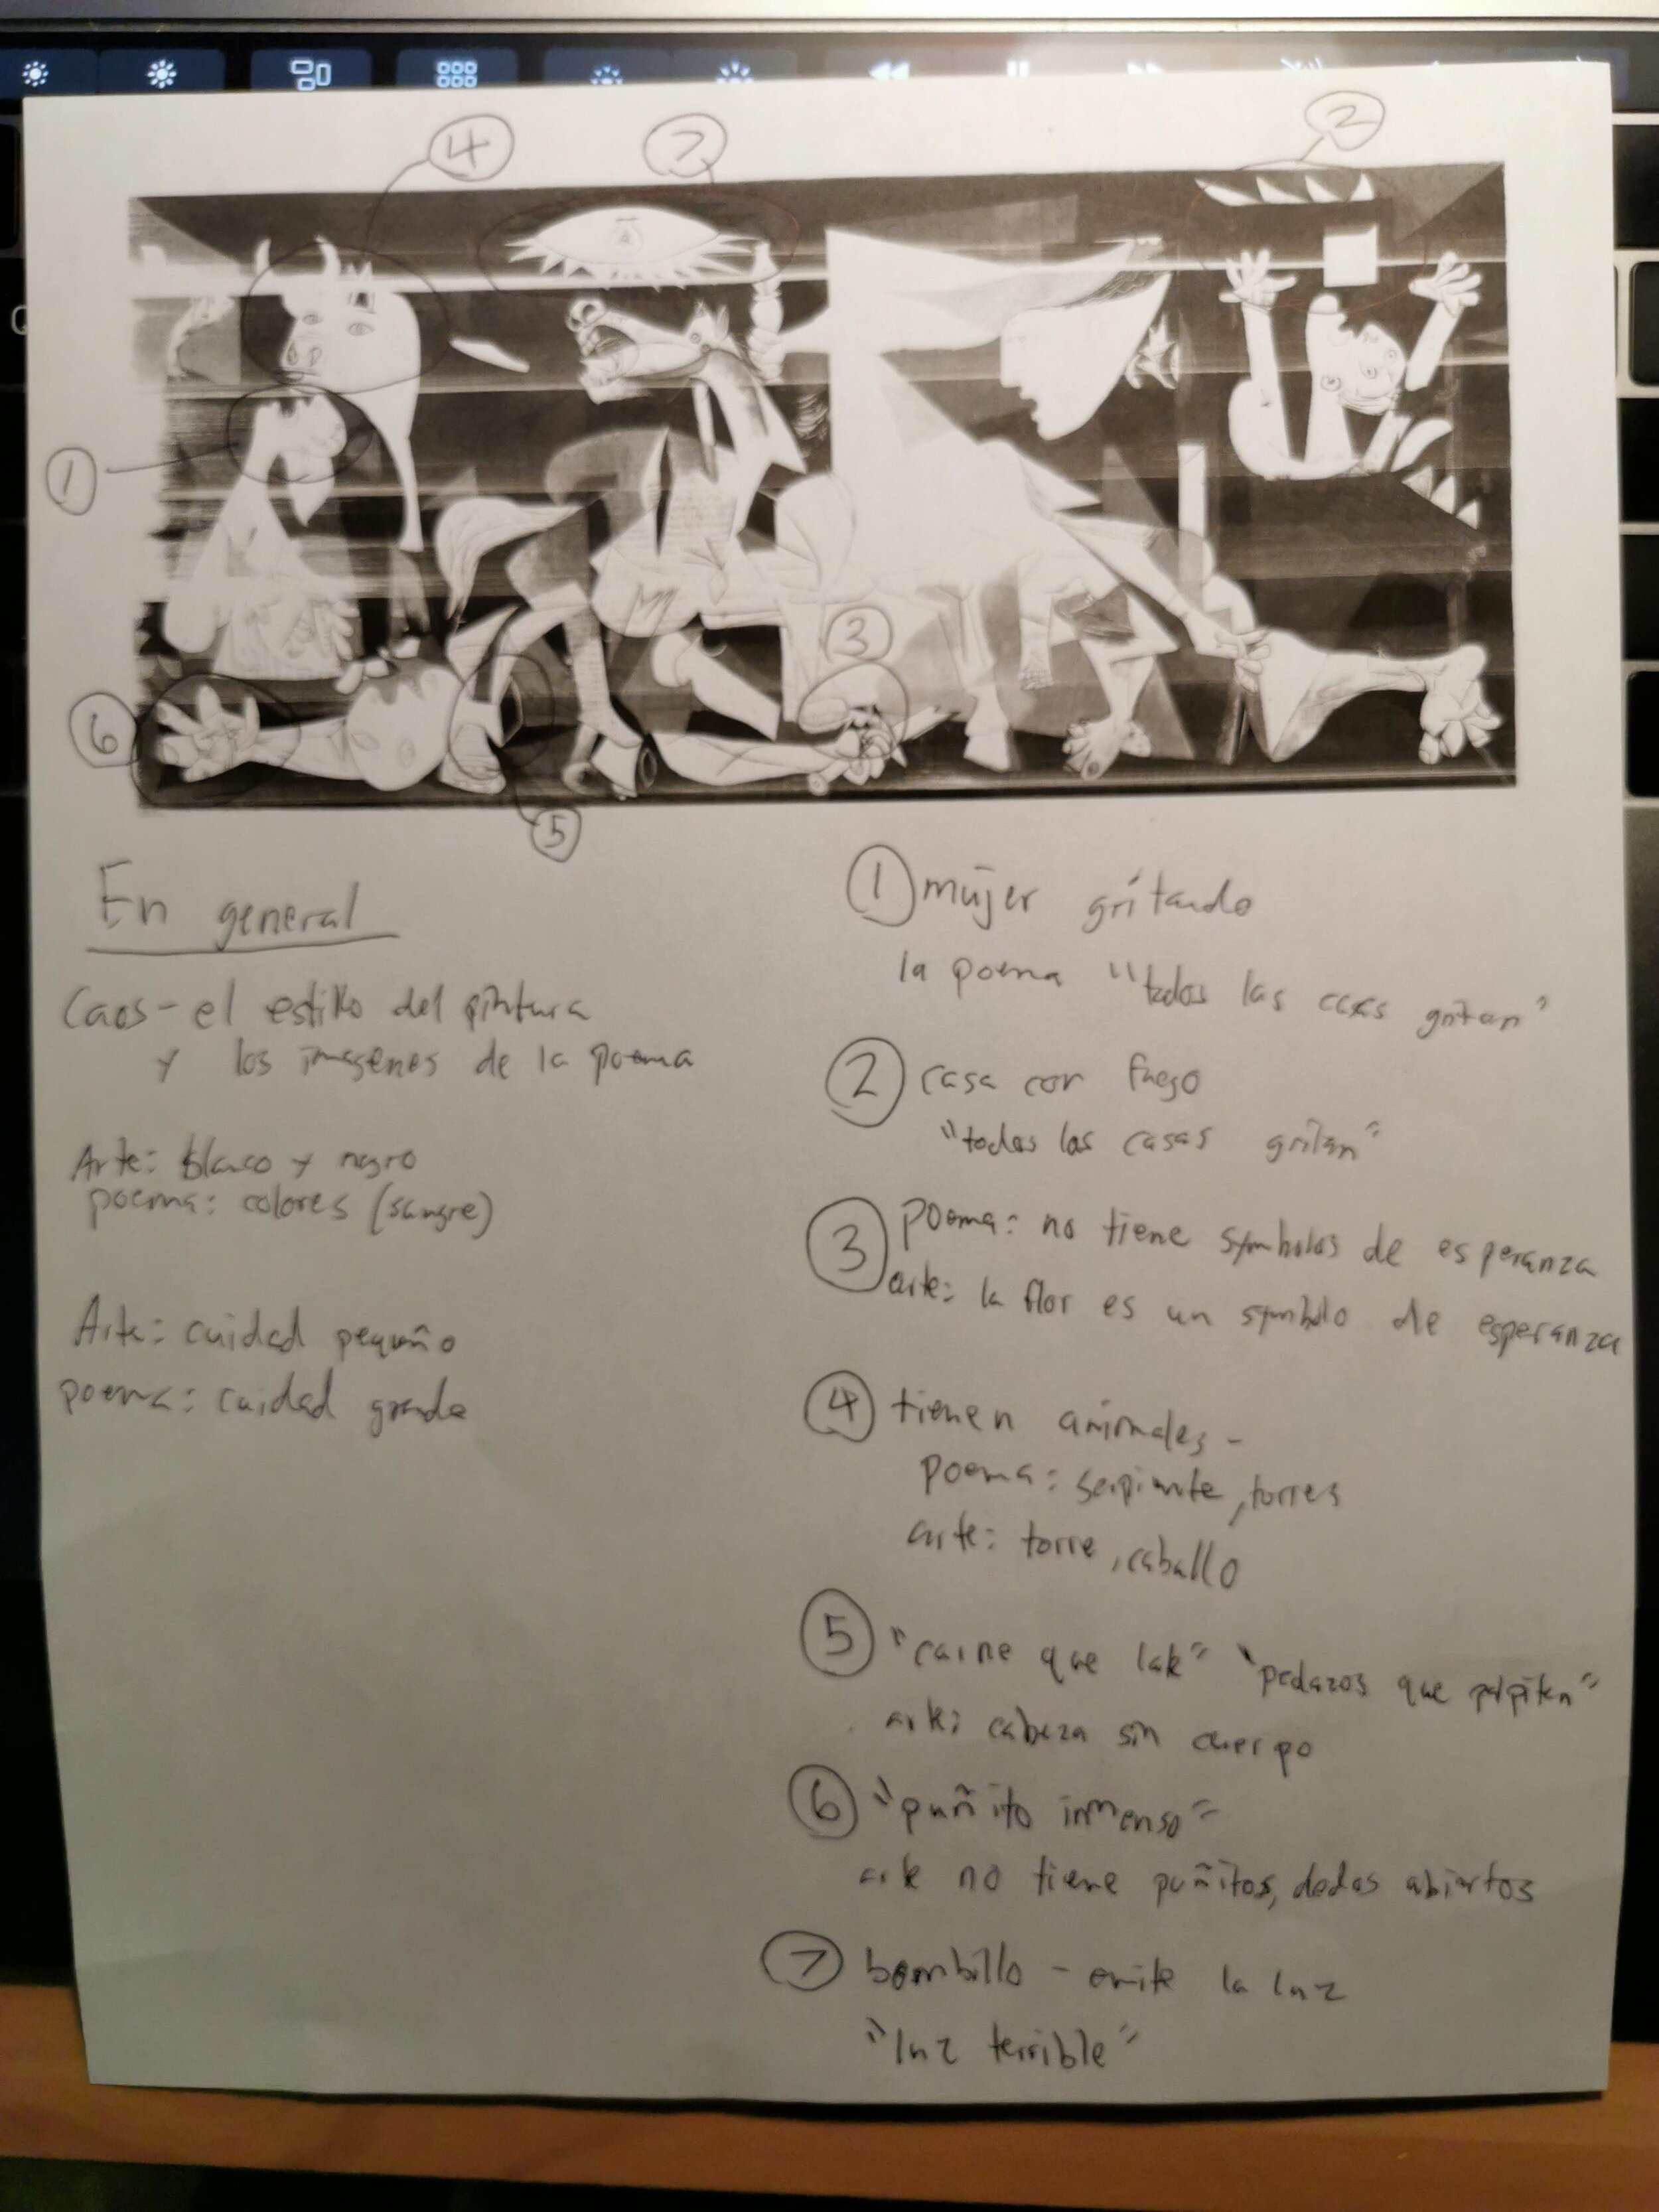 4
7
2
1
3
6
5
En general
Caos - el estilo del pintura
y los imagenes de la poema
Arte: blanco y negro
poema: colores (sangre)
Arte: cuidad pequeño
poema: cuidad grande
1 mujer gritando
la poema "todos las casas gritan"
2 casa con fuego
"todos las casas gritan"
3 poema: no tiene symbolos de esperanza
arte: la flor es un symbolo de esperanza
4 tienen animales -
poema: serpiente, torres
arte: torre, caballo
5 "carne que late" "pedazos que palpiten"
arte: cabeza sin cuerpo
6 "puñito inmenso"
arte no tiene puñitos, dedos abiertos
7 bombillo - emite la luz
"luz terrible"